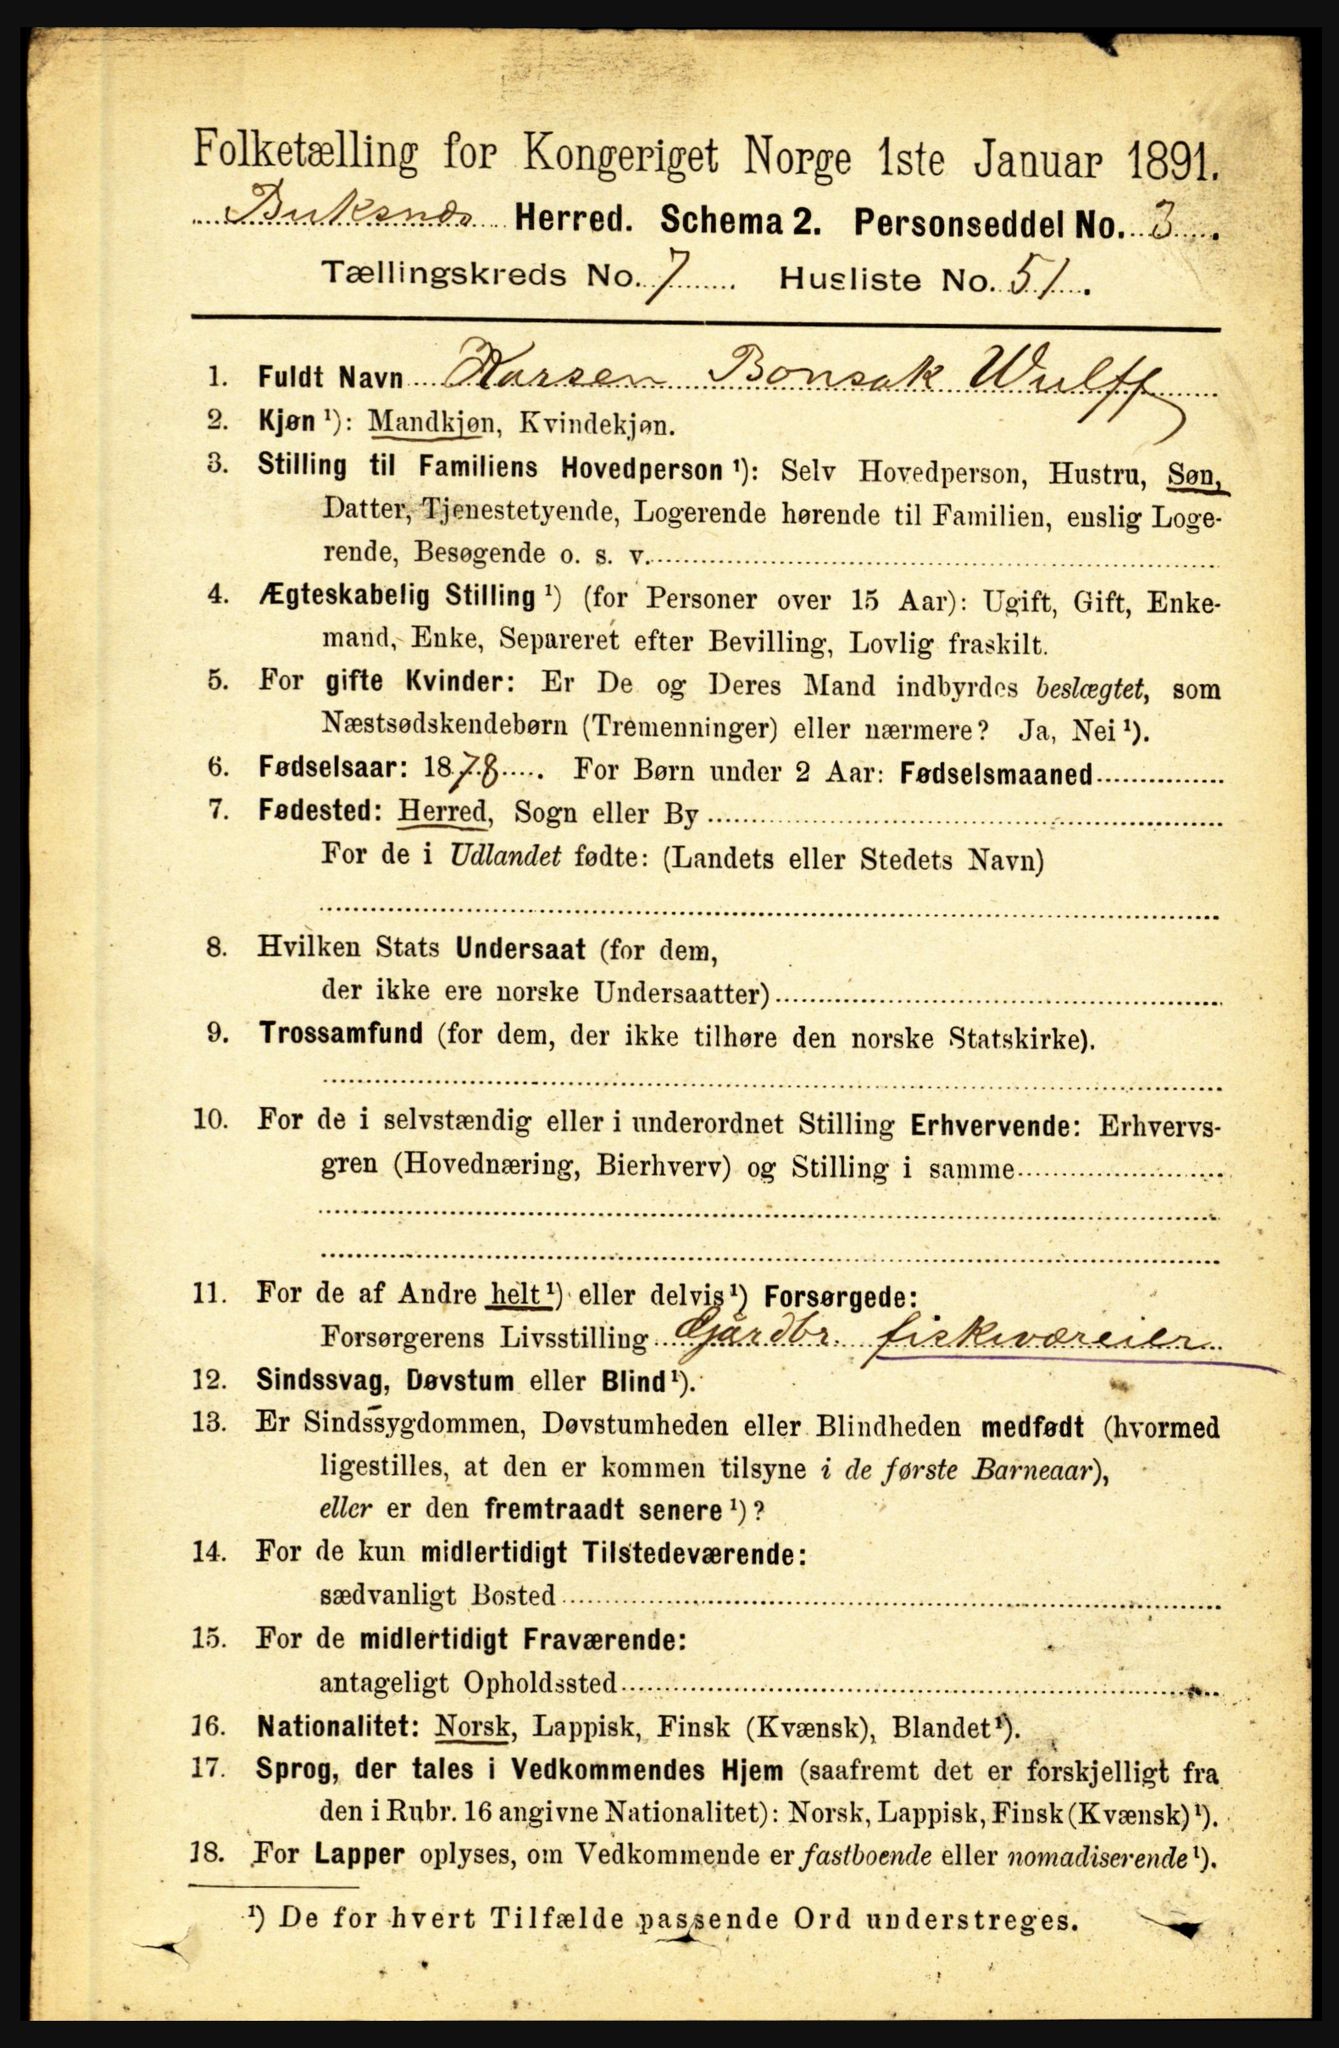 Folketælling for Kongeriget Norge 1ste Januar 1891.
Buksnæs Herred. Schema 2. Personseddel No. 3.
Tællingskreds No. 7 Husliste No. 51.
1. Fuldt Navn Karsen Bonsak Wulff
2. Kjøn ¹): Mandkjøn, Kvindekjøn.
3. Stilling til Familiens Hovedperson ¹): Selv Hovedperson, Hustru, Søn,
Datter, Tjenestetyende, Logerende hørende til Familien, enslig Loge-
rende, Besøgende o. s. v.
4. Ægteskabelig Stilling ¹) (for Personer over 15 Aar): Ugift, Gift, Enke-
mand, Enke, Separeret efter Bevilling, Lovlig fraskilt.
5. For gifte Kvinder: Er De og Deres Mand indbyrdes beslægtet, som
Næstsødskendebørn (Tremenninger) eller nærmere? Ja, Nei ¹).
6. Fødselsaar: 1878. For Børn under 2 Aar: Fødselsmaaned
7. Fødested: Herred, Sogn eller By
For de i Udlandet fødte: (Landets eller Stedets Navn)
8. Hvilken Stats Undersaat (for dem,
der ikke ere norske Undersaatter)
9. Trossamfund (for dem, der ikke tilhøre den norske Statskirke).
10. For de i selvstændig eller i underordnet Stilling Erhvervende: Erhvervs-
gren (Hovednæring, Bierhverv) og Stilling i samme
11. For de af Andre helt ¹) eller delvis ¹) Forsørgede:
Forsørgerens Livsstilling Gårdbr. fiskeværeier
12. Sindssvag, Døvstum eller Blind ¹).
13. Er Sindssygdommen, Døvstumheden eller Blindheden medfødt (hvormed
ligestilles, at den er kommen tilsyne i de første Barneaar),
eller er den fremtraadt senere ¹)?
14. For de kun midlertidigt Tilstedeværende:
sædvanligt Bosted
15. For de midlertidigt Fraværende:
antageligt Opholdssted
16. Nationalitet: Norsk, Lappisk, Finsk (Kvænsk), Blandet ¹).
17. Sprog, der tales i Vedkommendes Hjem (saafremt det er forskjelligt fra
den i Rubr. 16 angivne Nationalitet): Norsk, Lappisk, Finsk (Kvænsk) ¹).
18. For Lapper oplyses, om Vedkommende er fastboende eller nomadiserende ¹).
¹) De for hvert Tilfælde passende Ord understreges.